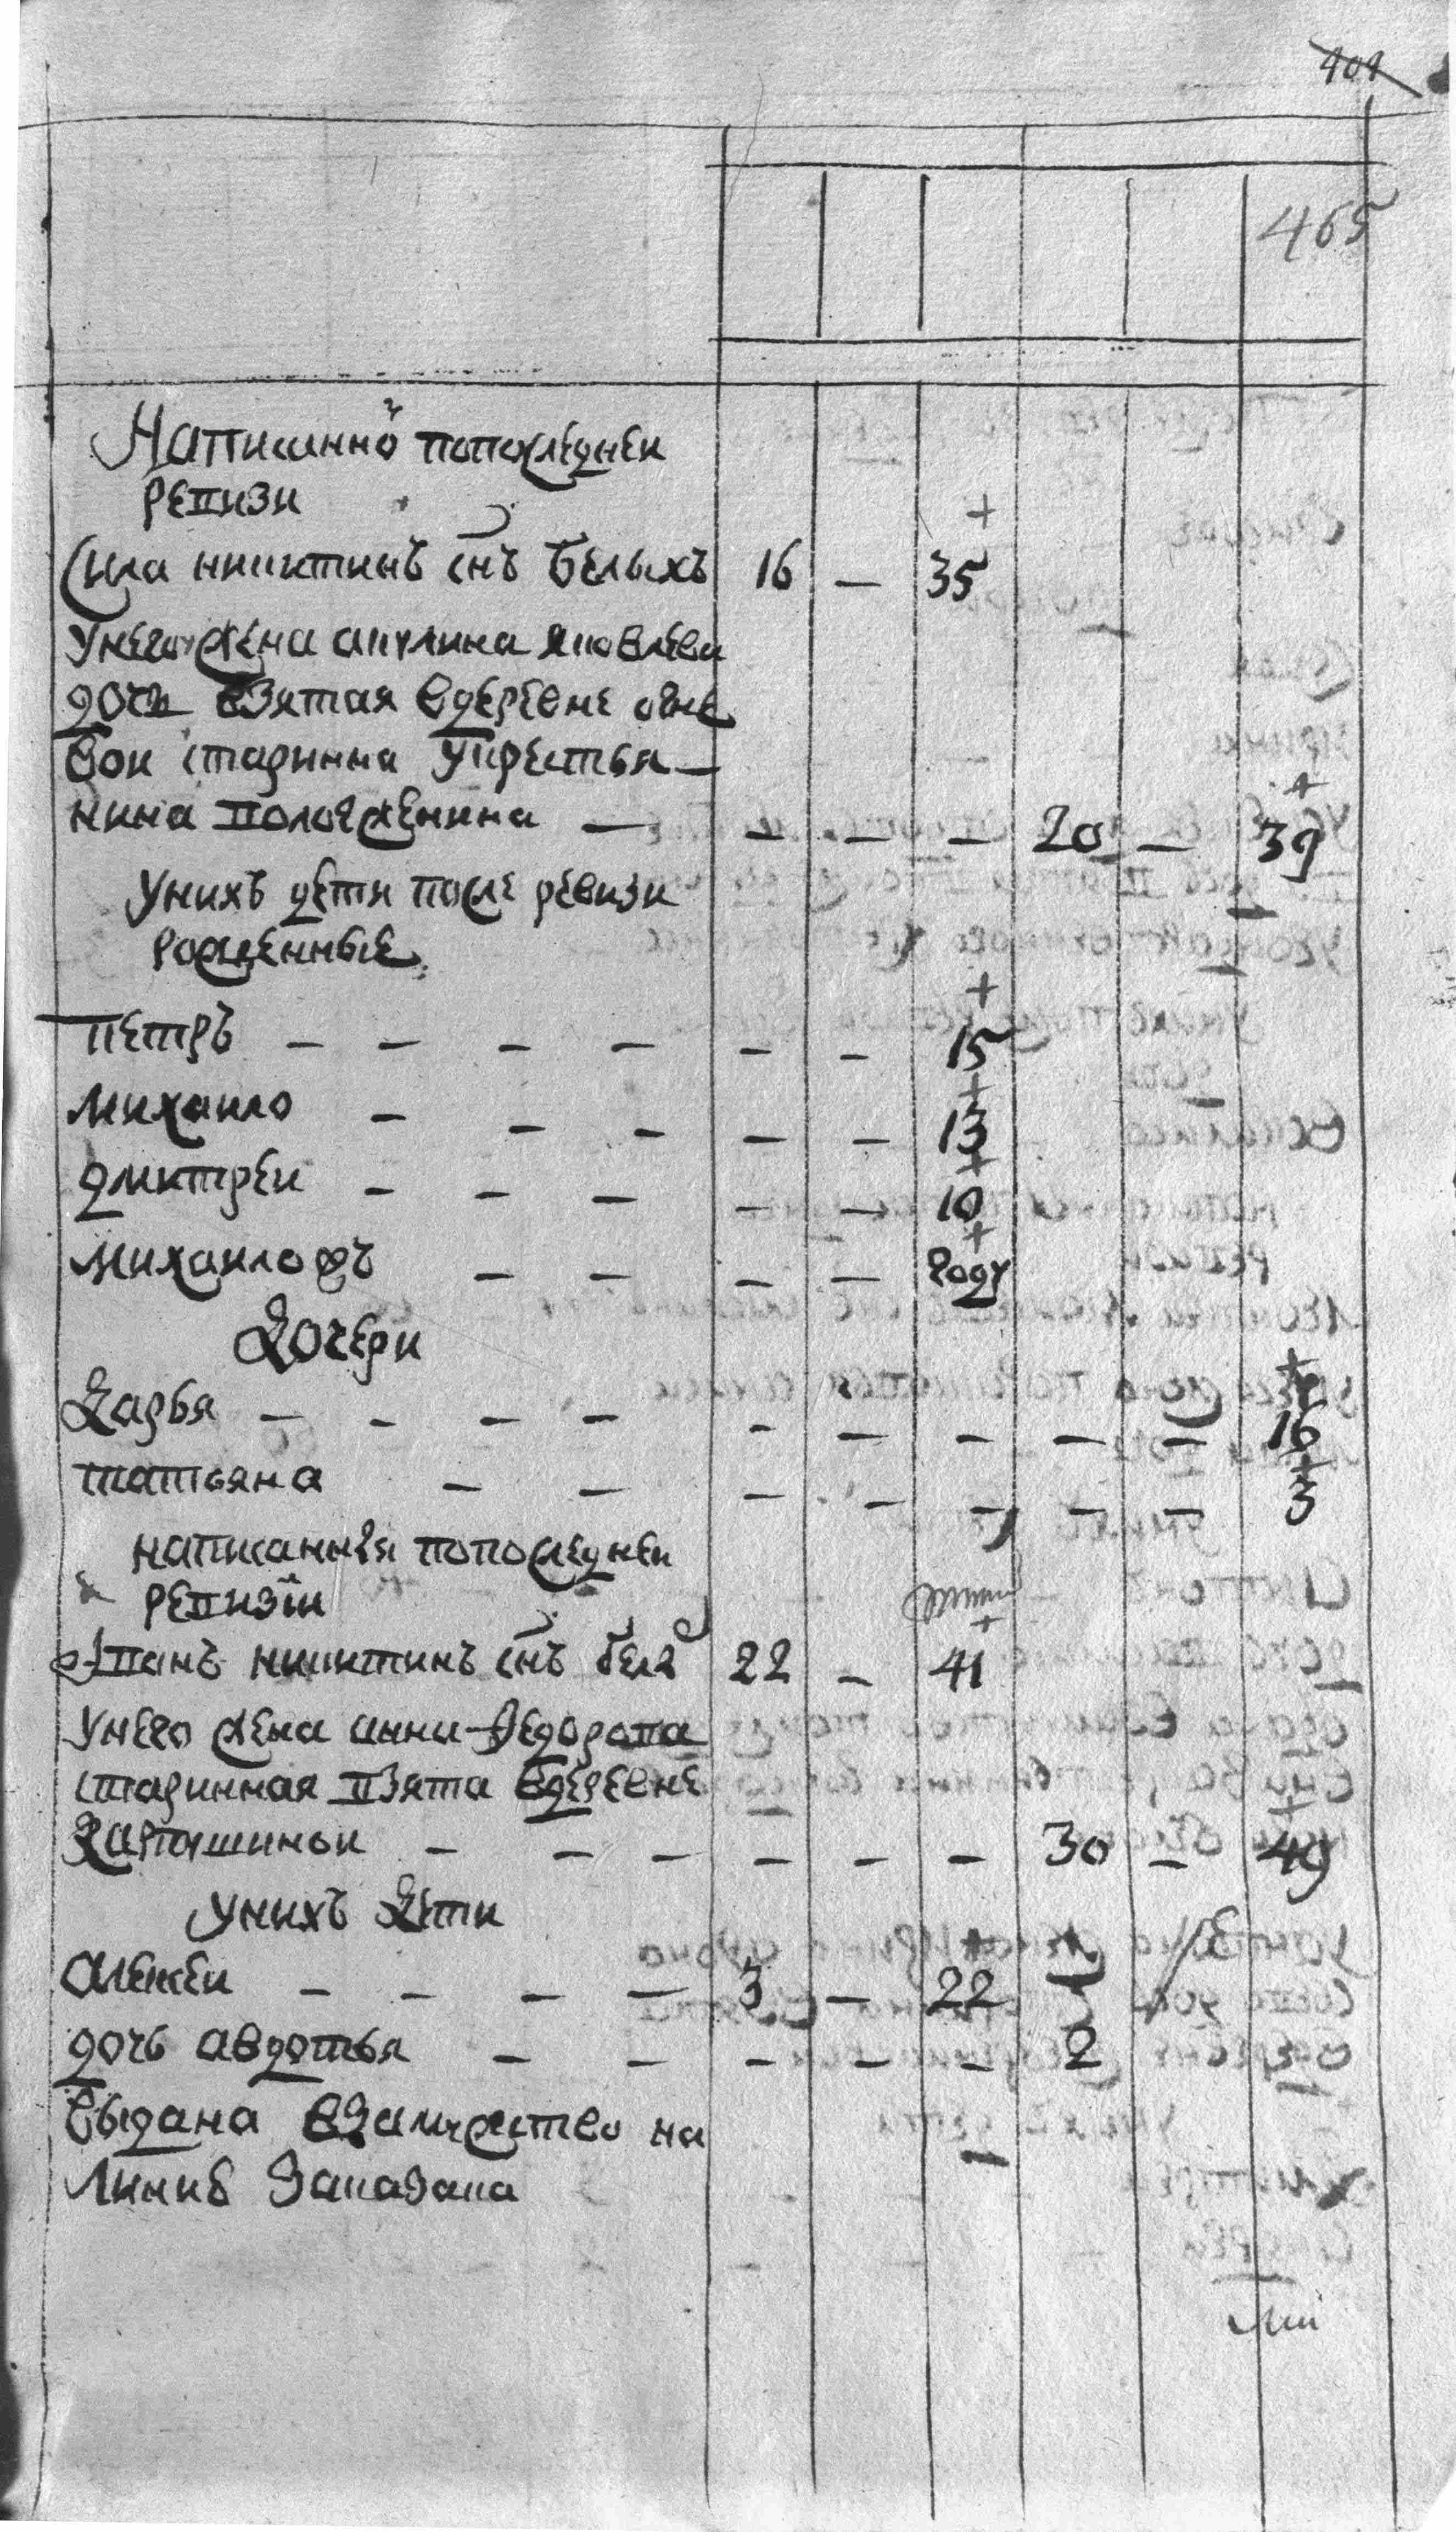 401
465
Написанно̆ попоследнеи
ревизи
Сила никитинъ снъ белыхъ 16 — 35
Унего жена акулина яковлева
дочь взятая вдеревне
вои старинна укрестья—
нина — — — — 20 — 39
Унихъ дети после ревизи
рожденные
петръ — — — — — — 15
михаило — — — — — 13
дмитреи — — — — — 10
михаило жъ — — — — году
Дочери
Дарья — — — — — — — — — 16
татьяна — — — — — — — 3
написанныя попоследнеи
ревизїи
Иванъ никитинъ снъ белы 22 — 41
Унего жена анна Федорова
старинная взята вдеревне
— — — — — — 30 — 49
Унихъ Дети
Алексеи — — — — 3 — 22
дочь авдотья — — — — — 2
выдана взамужство на
Линию